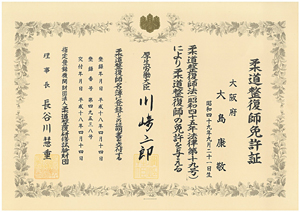 柔道整復師免許証
大阪府
大島康敬
昭和四十九年九月二十一日生
柔道整復師法(昭和四十五年法律第十九号)
により柔道整復師の免許を与える
厚生労働大臣 川崎二郎
柔道整復師名簿に登録したことを証明し
登録年月日 平成十八年四月十四日
登録番号 第四九五三八号
交付年月日 平成十八年四月十四日
指定登録機関財団法人柔道整復研修試験財団
理事長 長谷川慧重